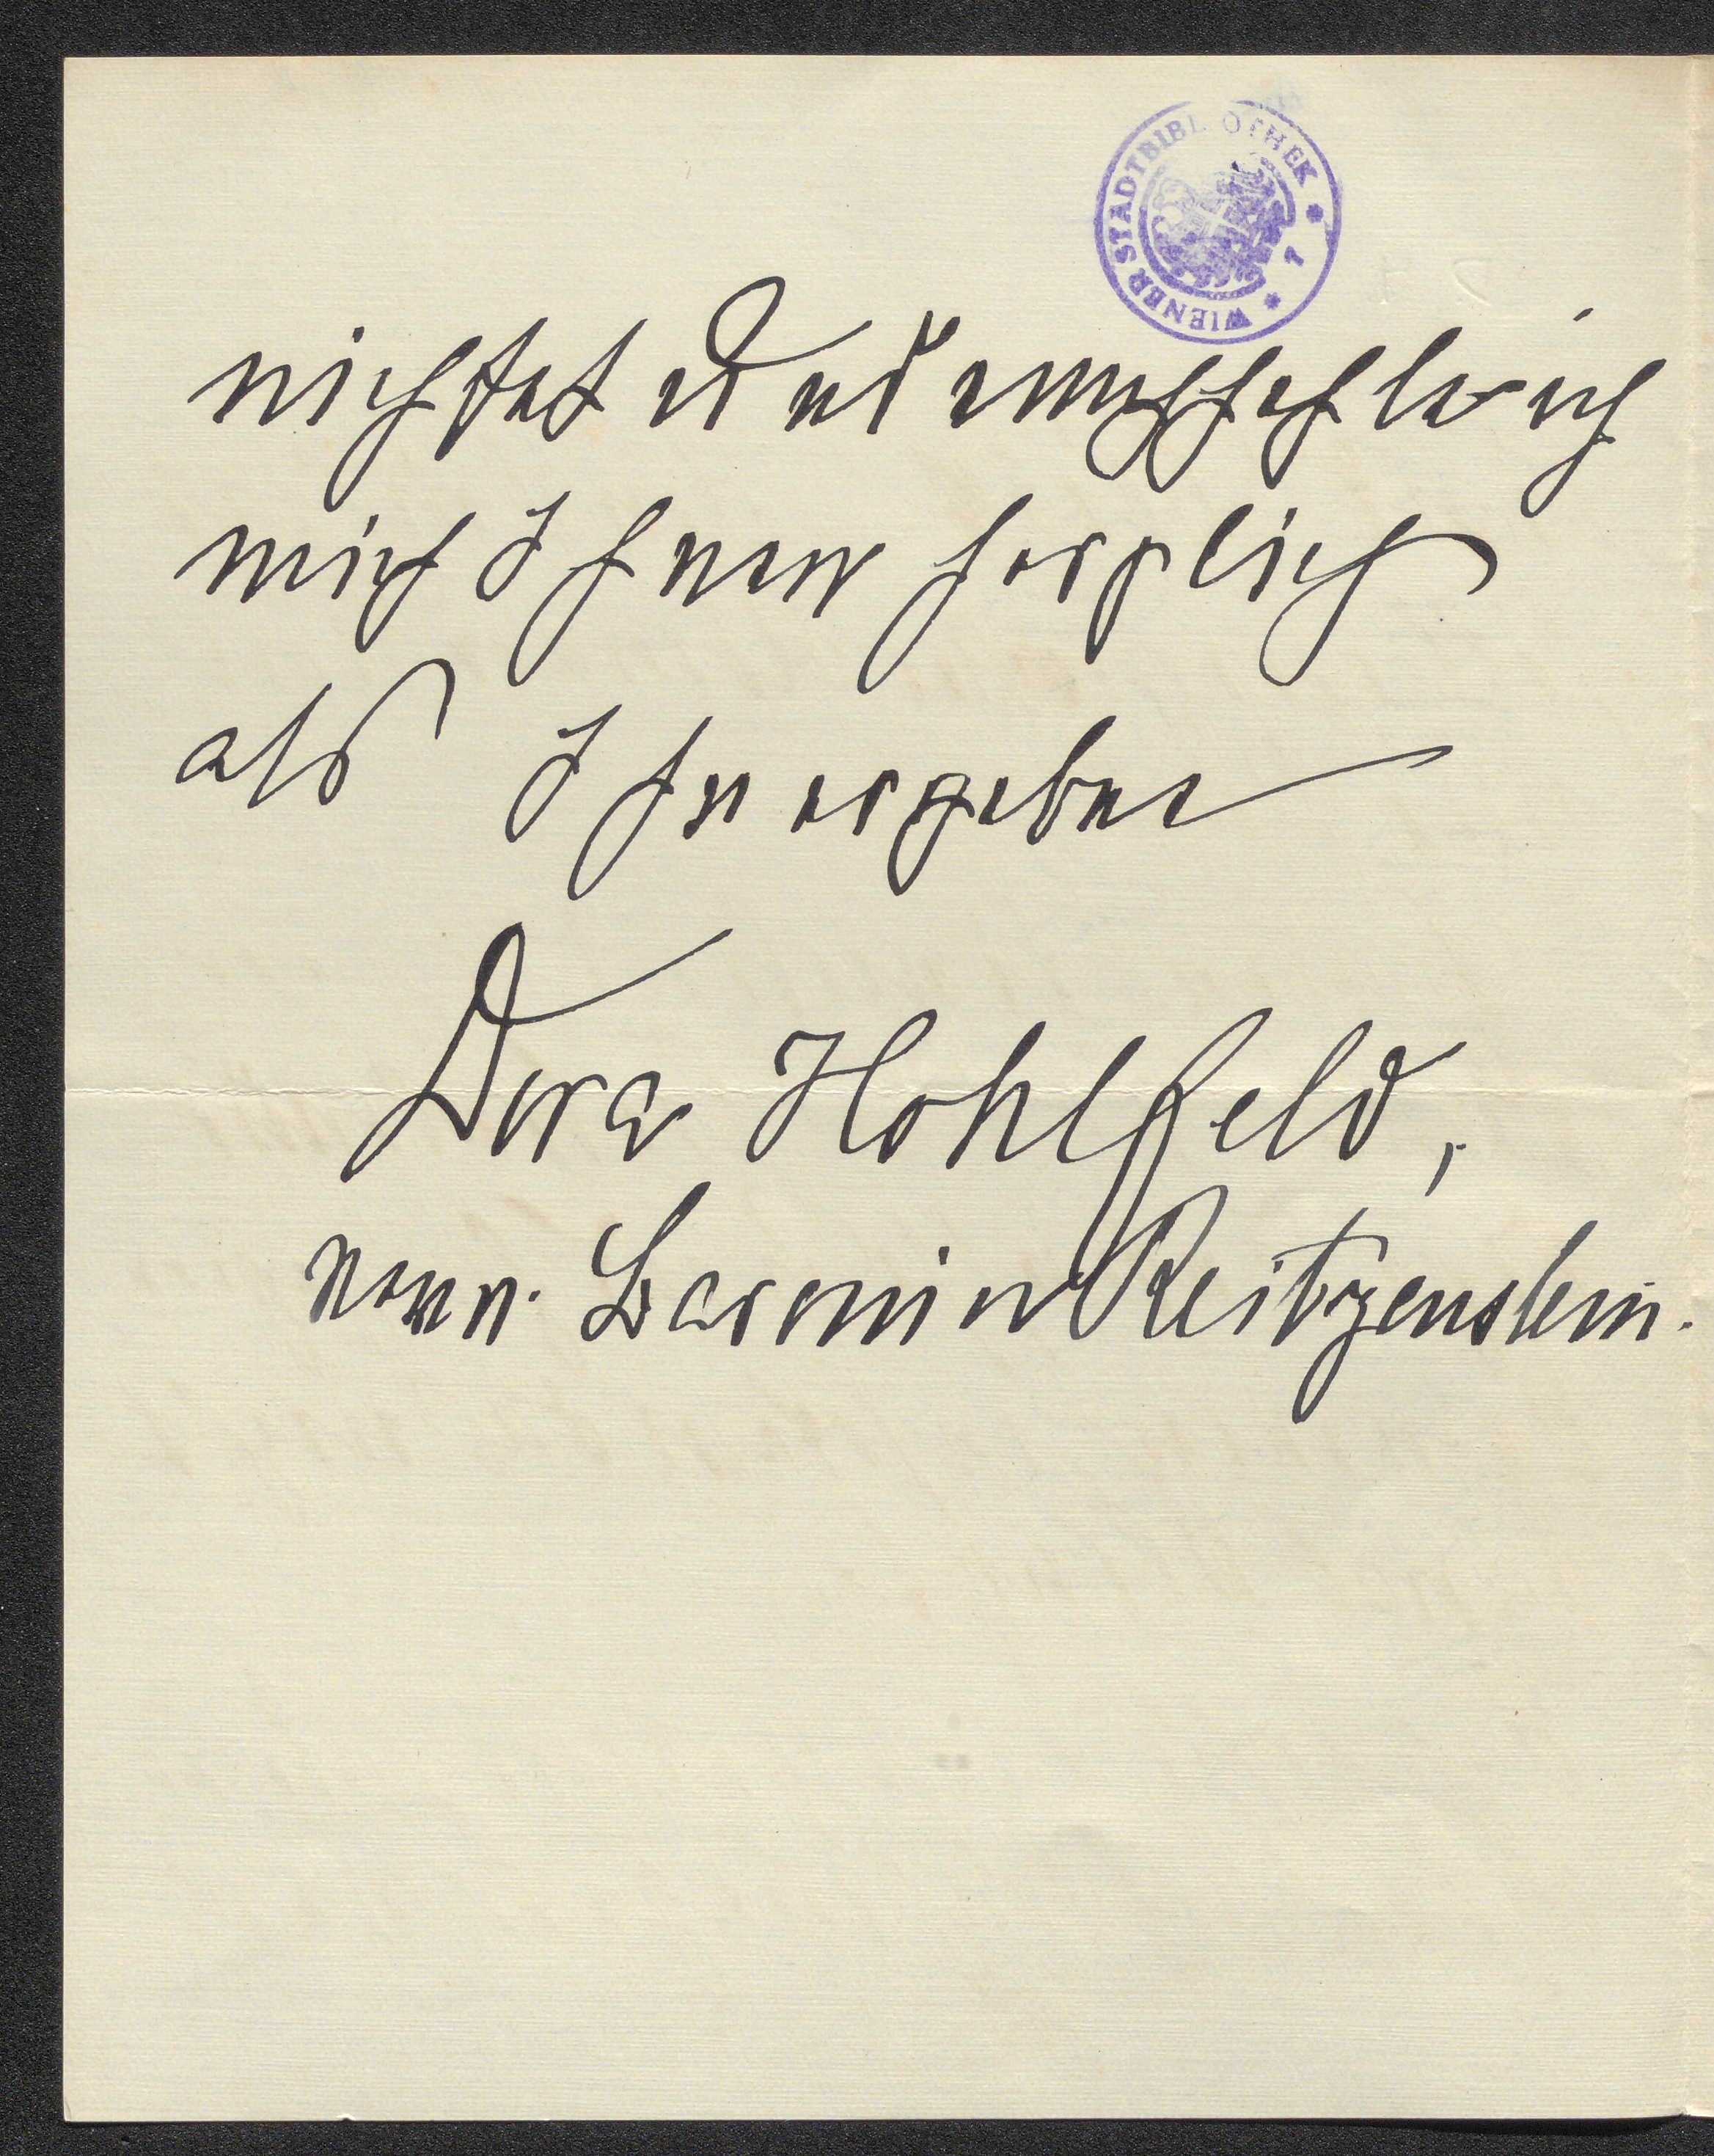 WIENER STADTBIBLIOTHEK
nichtet empfehle ich
mich Ihnen herzlich
als Ihre ergebne
Dora Hohlfeld,
verw. Baronin Reitzenstein.